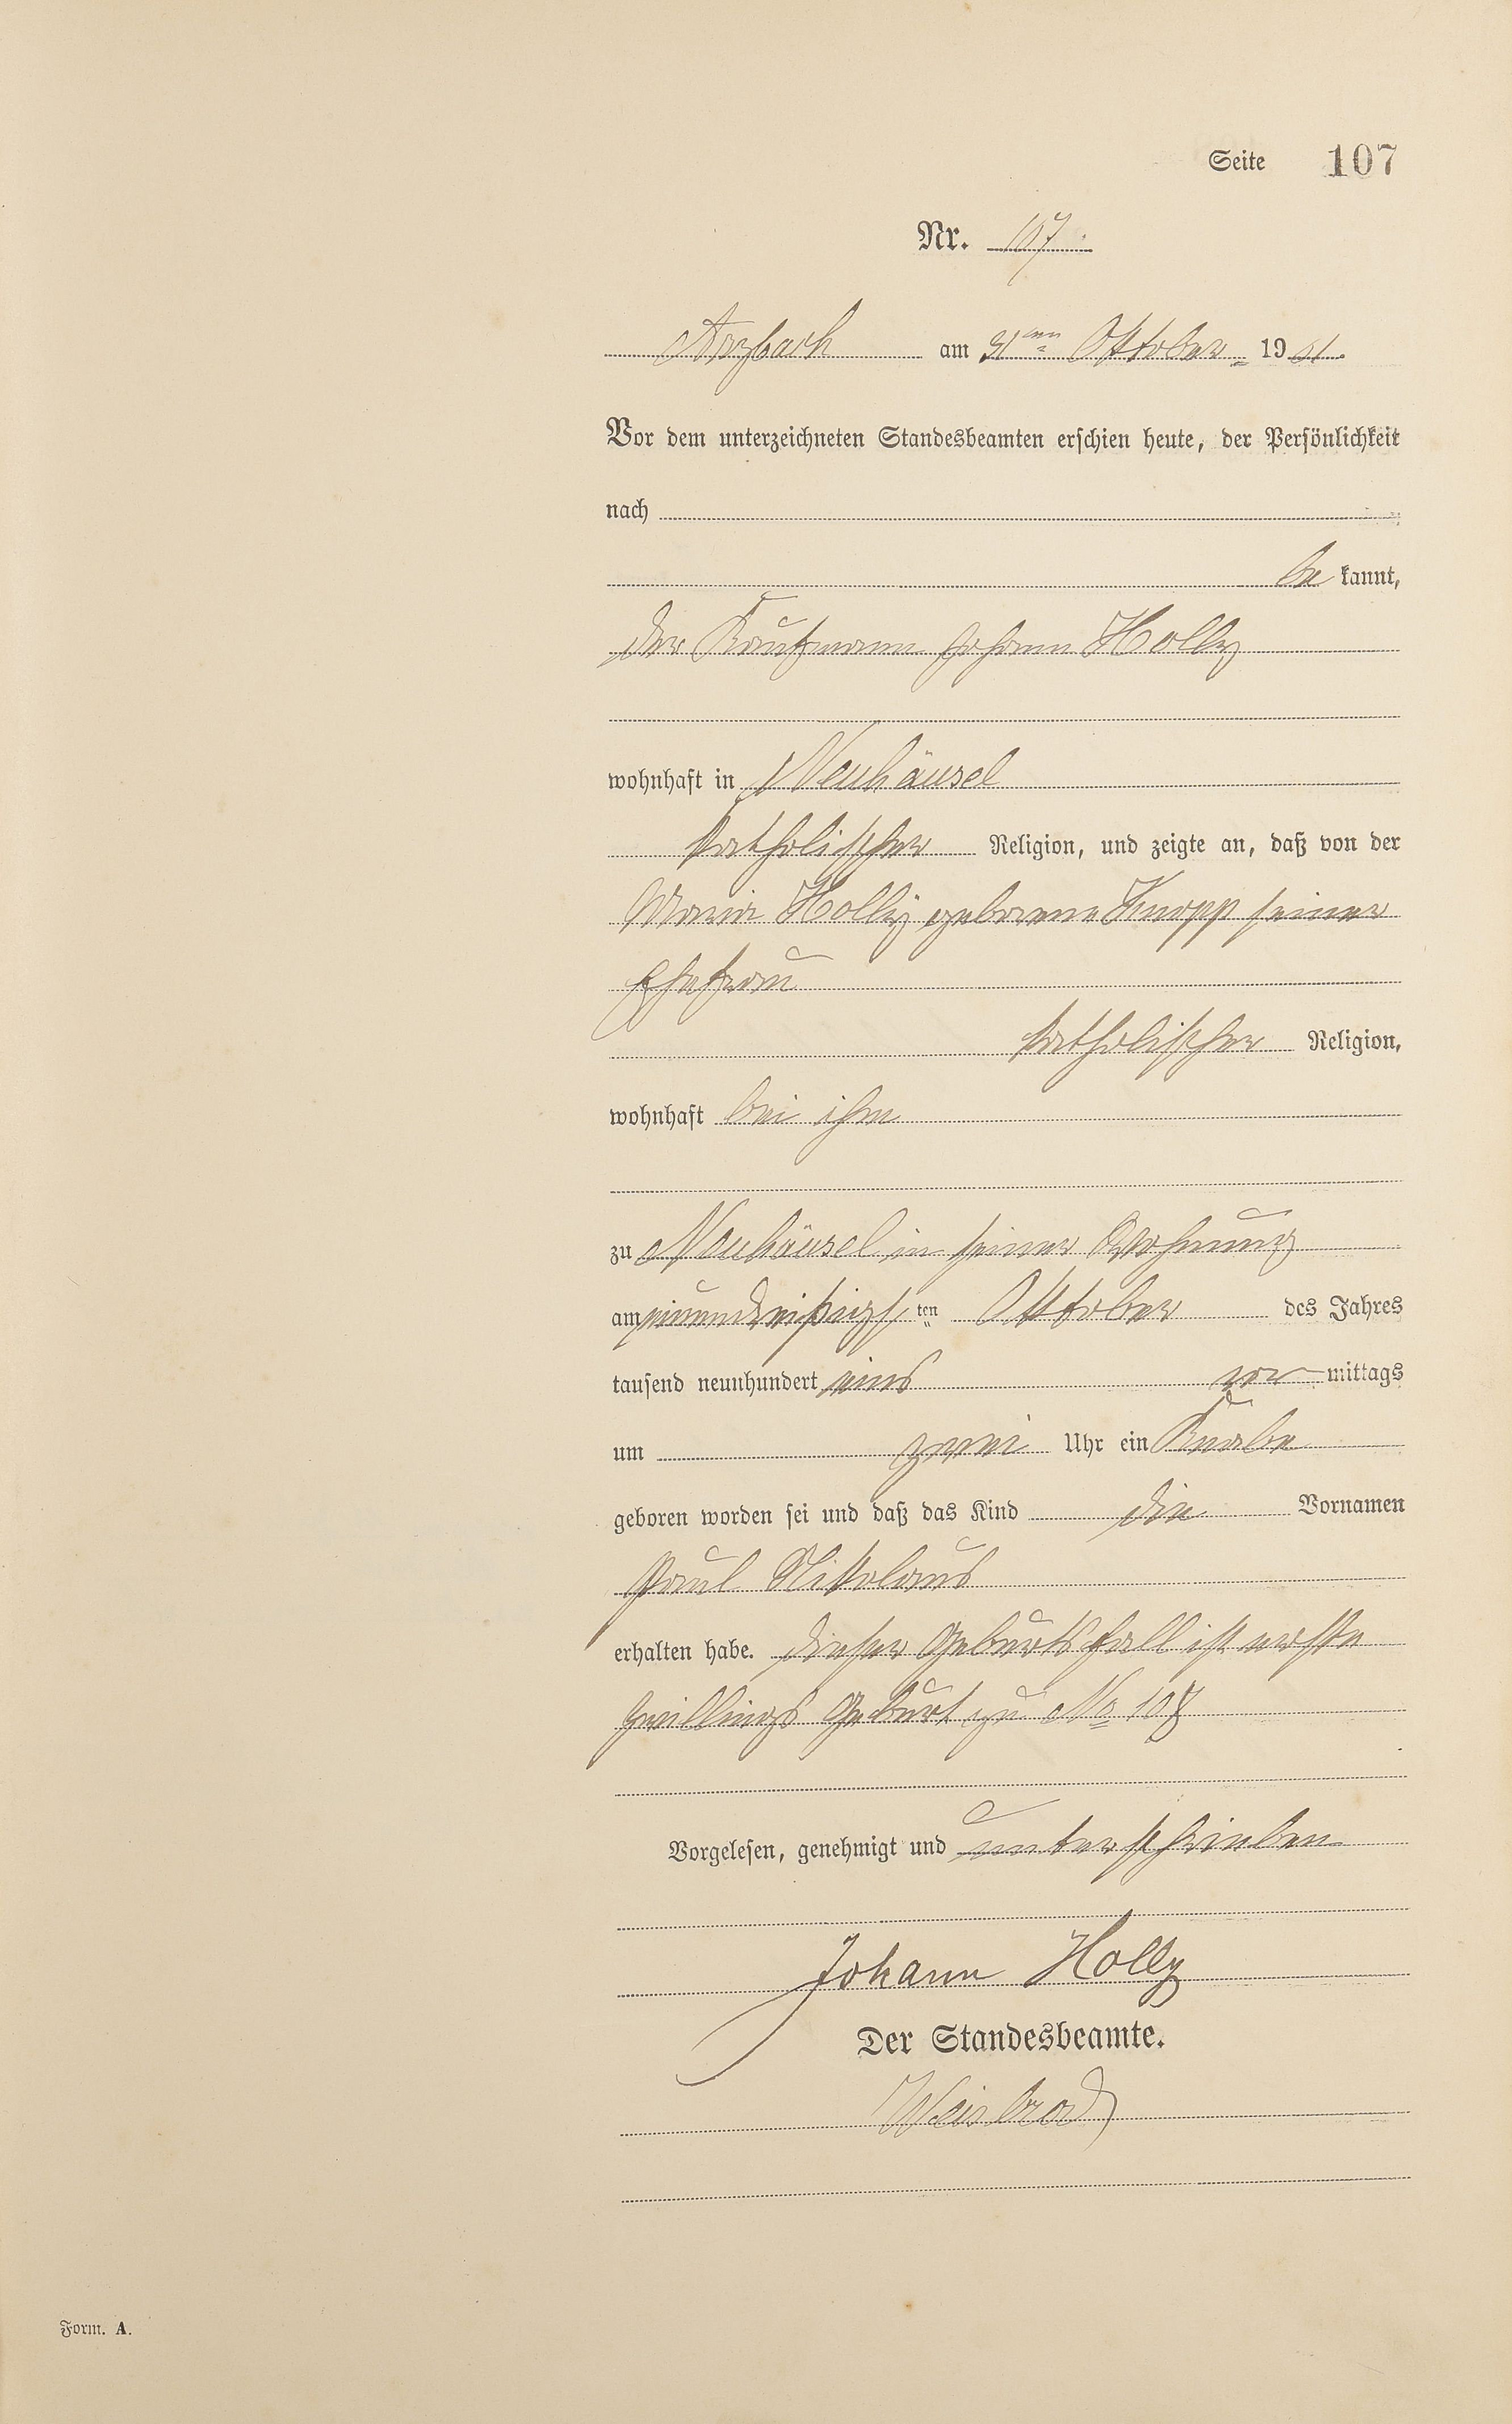 Seite 107
Nr. 107.
Arzbach am 31ten Oktober 1901.
Vor dem unterzeichneten Standesbeamten erschien heute, der Persönlichkeit
nach
be kannt,
der Kaufmann Johann Holly
wohnhaft in Neuhäusel
katholischer Religion, und zeigte an, daß von der
Maria Holly geborene Knopp seiner
Ehefrau
katholischer Religion,
wohnhaft bei ihm
zu Neuhäusel in seiner Wohnung
am einunddreißigsten Oktober des Jahres
tausend neunhundert eins vor mittags
um zwei Uhr ein Knabe
geboren worden sei und daß das Kind die Vornamen
Paul Nikolaus
erhalten habe. Dieser Geburtsfall ist erste
Zwillings Geburt zu No 108
Vorgelesen, genehmigt und unterschrieben
Johann Holly
Der Standesbeamte.
Weisbrod
Form. A.